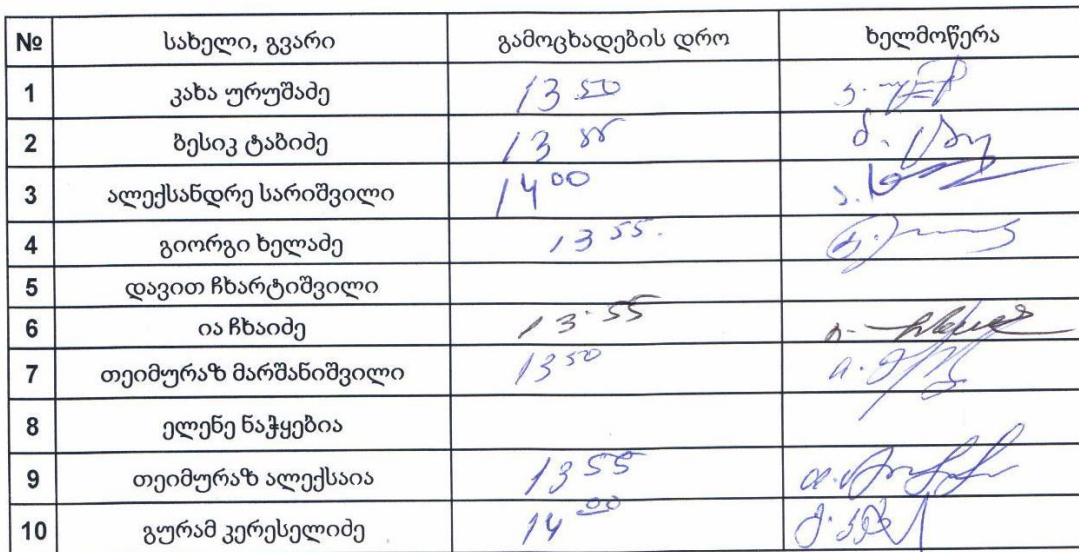 № სახელი, გვარი გამოცხადების დრო ხელმოწერა
1 კახა ურუშაძე 13 50
2 ბესიკ ტაბიძე 13
3 ალექსანდრე სარიშვილი 14 00
4 გიორგი ხელაძე 13 55.
5 დავით ჩხარტიშვილი
6 ია ჩხაიძე 13·55
7 თეიმურაზ მარშანიშვილი 13 50
8 ელენე ნაჭყებია
9 თეიმურაზ ალექსაია 13 55
10 გურამ კერესელიძე 14 00